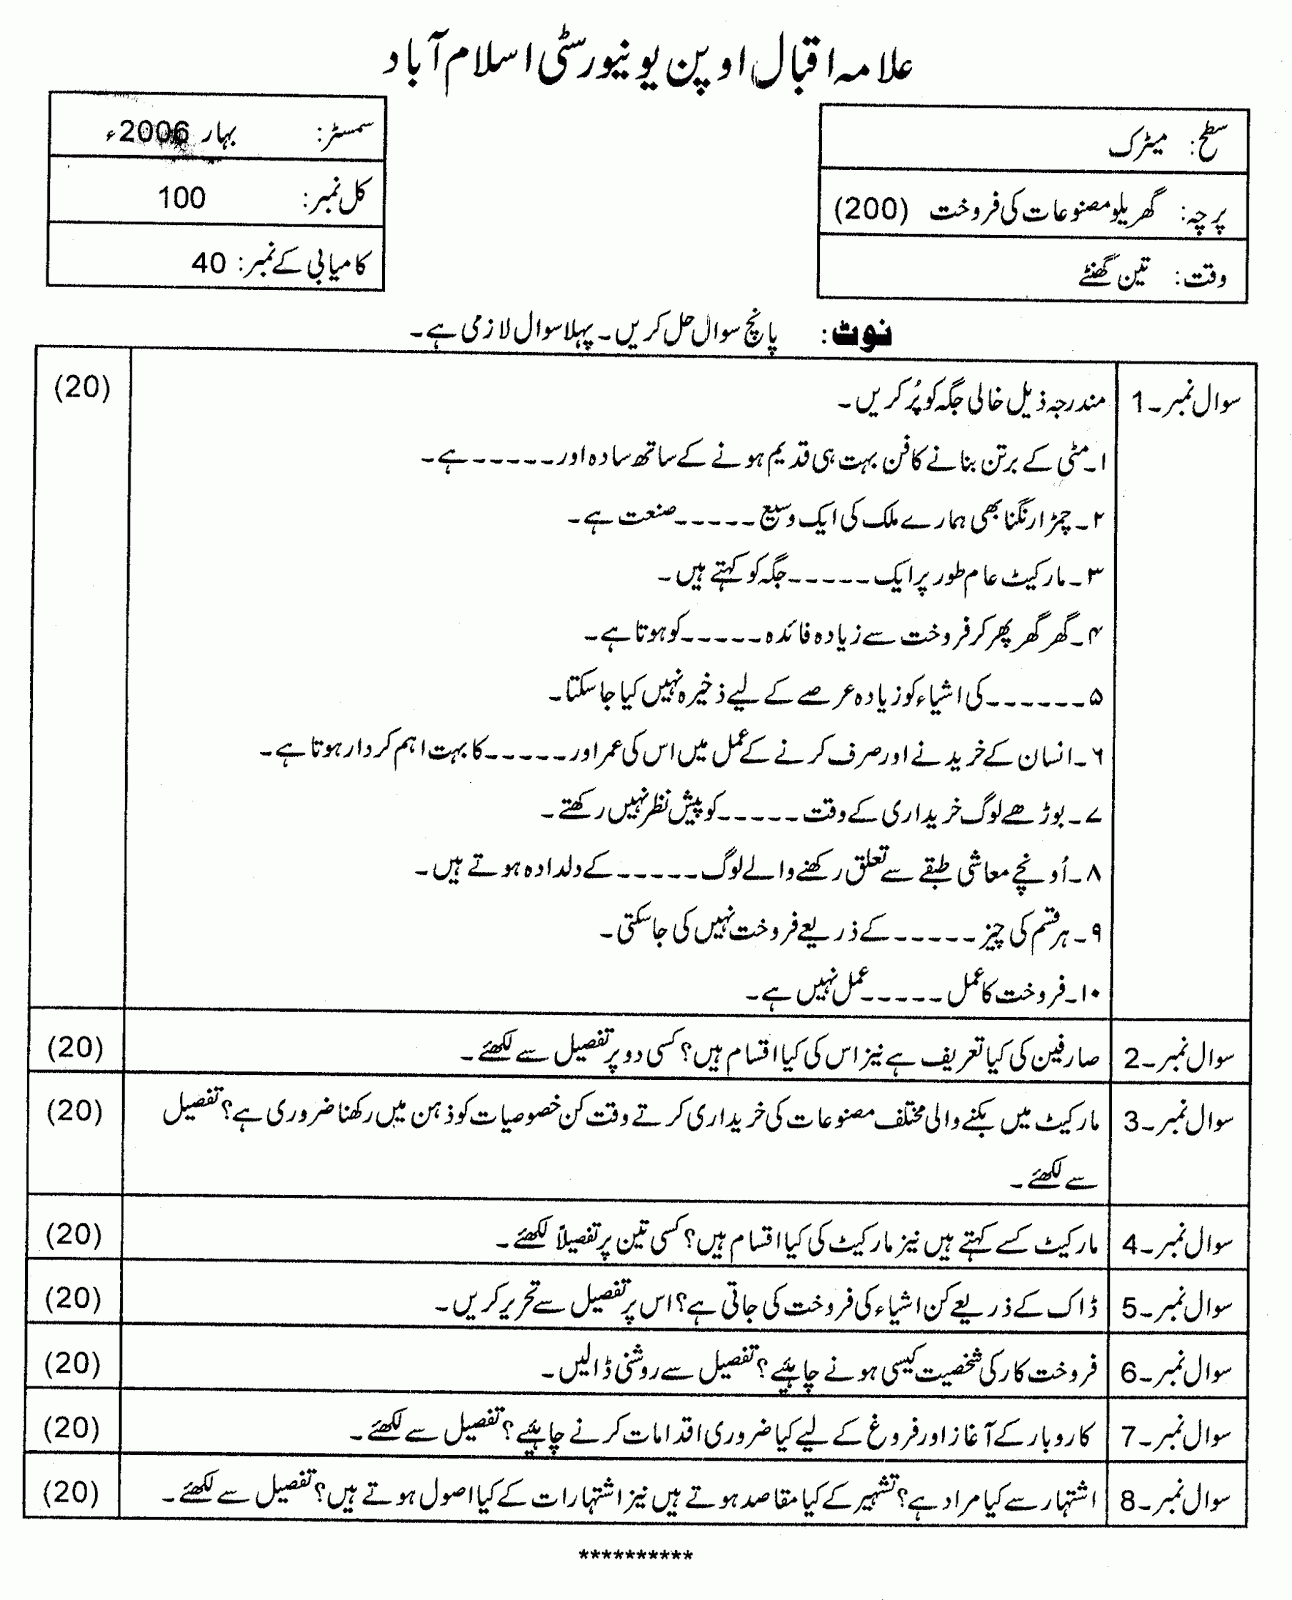 علامہ اقبال اوپن یونیورسٹی اسلام آباد
سطح: میٹرک
سمسٹر: بہار 2006ء
پرچہ: گھریلو مصنوعات کی فروخت (200)
کل نمبر: 100
وقت: تین گھنٹے
کامیابی کے نمبر: 40
نوٹ: پانچ سوال حل کریں۔ پہلا سوال لازمی ہے۔
سوال نمبر۔1 مندرجہ ذیل خالی جگہ کو پُر کریں۔ (20)
۱۔مٹی کے برتن بنانے کا فن بہت ہی قدیم ہونے کے ساتھ سادہ اور ۔۔۔۔۔ ہے۔
۲۔ چمڑا رنگنا بھی ہمارے ملک کی ایک وسیع ۔۔۔۔۔ صنعت ہے۔
۳۔ مارکیٹ عام طور پر ایک ۔۔۔۔۔ جگہ کو کہتے ہیں۔
۴۔ گھر گھر پھر کر فروخت سے زیادہ فائدہ ۔۔۔۔۔ کو ہوتا ہے۔
۵۔ ۔۔۔۔۔ کی اشیاء کو زیادہ عرصے کے لیے ذخیرہ نہیں کیا جا سکتا۔
۶۔ انسان کے خریدنے اور صرف کرنے کے عمل میں اس کی عمر اور ۔۔۔۔۔ کا بہت اہم کردار ہوتا ہے۔
۷۔ بوڑھے لوگ خریداری کے وقت ۔۔۔۔۔ کو پیش نظر نہیں رکھتے۔
۸۔ اُونچے معاشی طبقے سے تعلق رکھنے والے لوگ ۔۔۔۔۔ کے دلدادہ ہوتے ہیں۔
۹۔ ہر قسم کی چیز ۔۔۔۔۔ کے ذریعے فروخت نہیں کی جا سکتی۔
۱۰۔ فروخت کا عمل ۔۔۔۔۔ عمل نہیں ہے۔
سوال نمبر۔2 صارفین کی کیا تعریف ہے نیز اس کی کیا اقسام ہیں؟ کسی دو پر تفصیل سے لکھئے۔ (20)
سوال نمبر۔3 مارکیٹ میں بکنے والی مختلف مصنوعات کی خریداری کرتے وقت کن خصوصیات کو ذہن میں رکھنا ضروری ہے؟ تفصیل (20)
سے لکھئے۔
سوال نمبر۔4 مارکیٹ کسے کہتے ہیں نیز مارکیٹ کی کیا اقسام ہیں؟ کسی تین پر تفصیلاً لکھئے۔ (20)
سوال نمبر۔5 ڈاک کے ذریعے کن اشیاء کی فروخت کی جاتی ہے؟ اس پر تفصیل سے تحریر کریں۔ (20)
سوال نمبر۔6 فروخت کار کی شخصیت کیسی ہونے چاہیئے؟ تفصیل سے روشنی ڈالیں۔ (20)
سوال نمبر۔7 کاروبار کے آغاز اور فروغ کے لیے کیا ضروری اقدامات کرنے چاہیئے؟ تفصیل سے لکھئے۔ (20)
سوال نمبر۔8 اشتہار سے کیا مراد ہے؟ تشہیر کے کیا مقاصد ہوتے ہیں نیز اشتہارات کے کیا اصول ہوتے ہیں؟ تفصیل سے لکھئے۔ (20)
**********